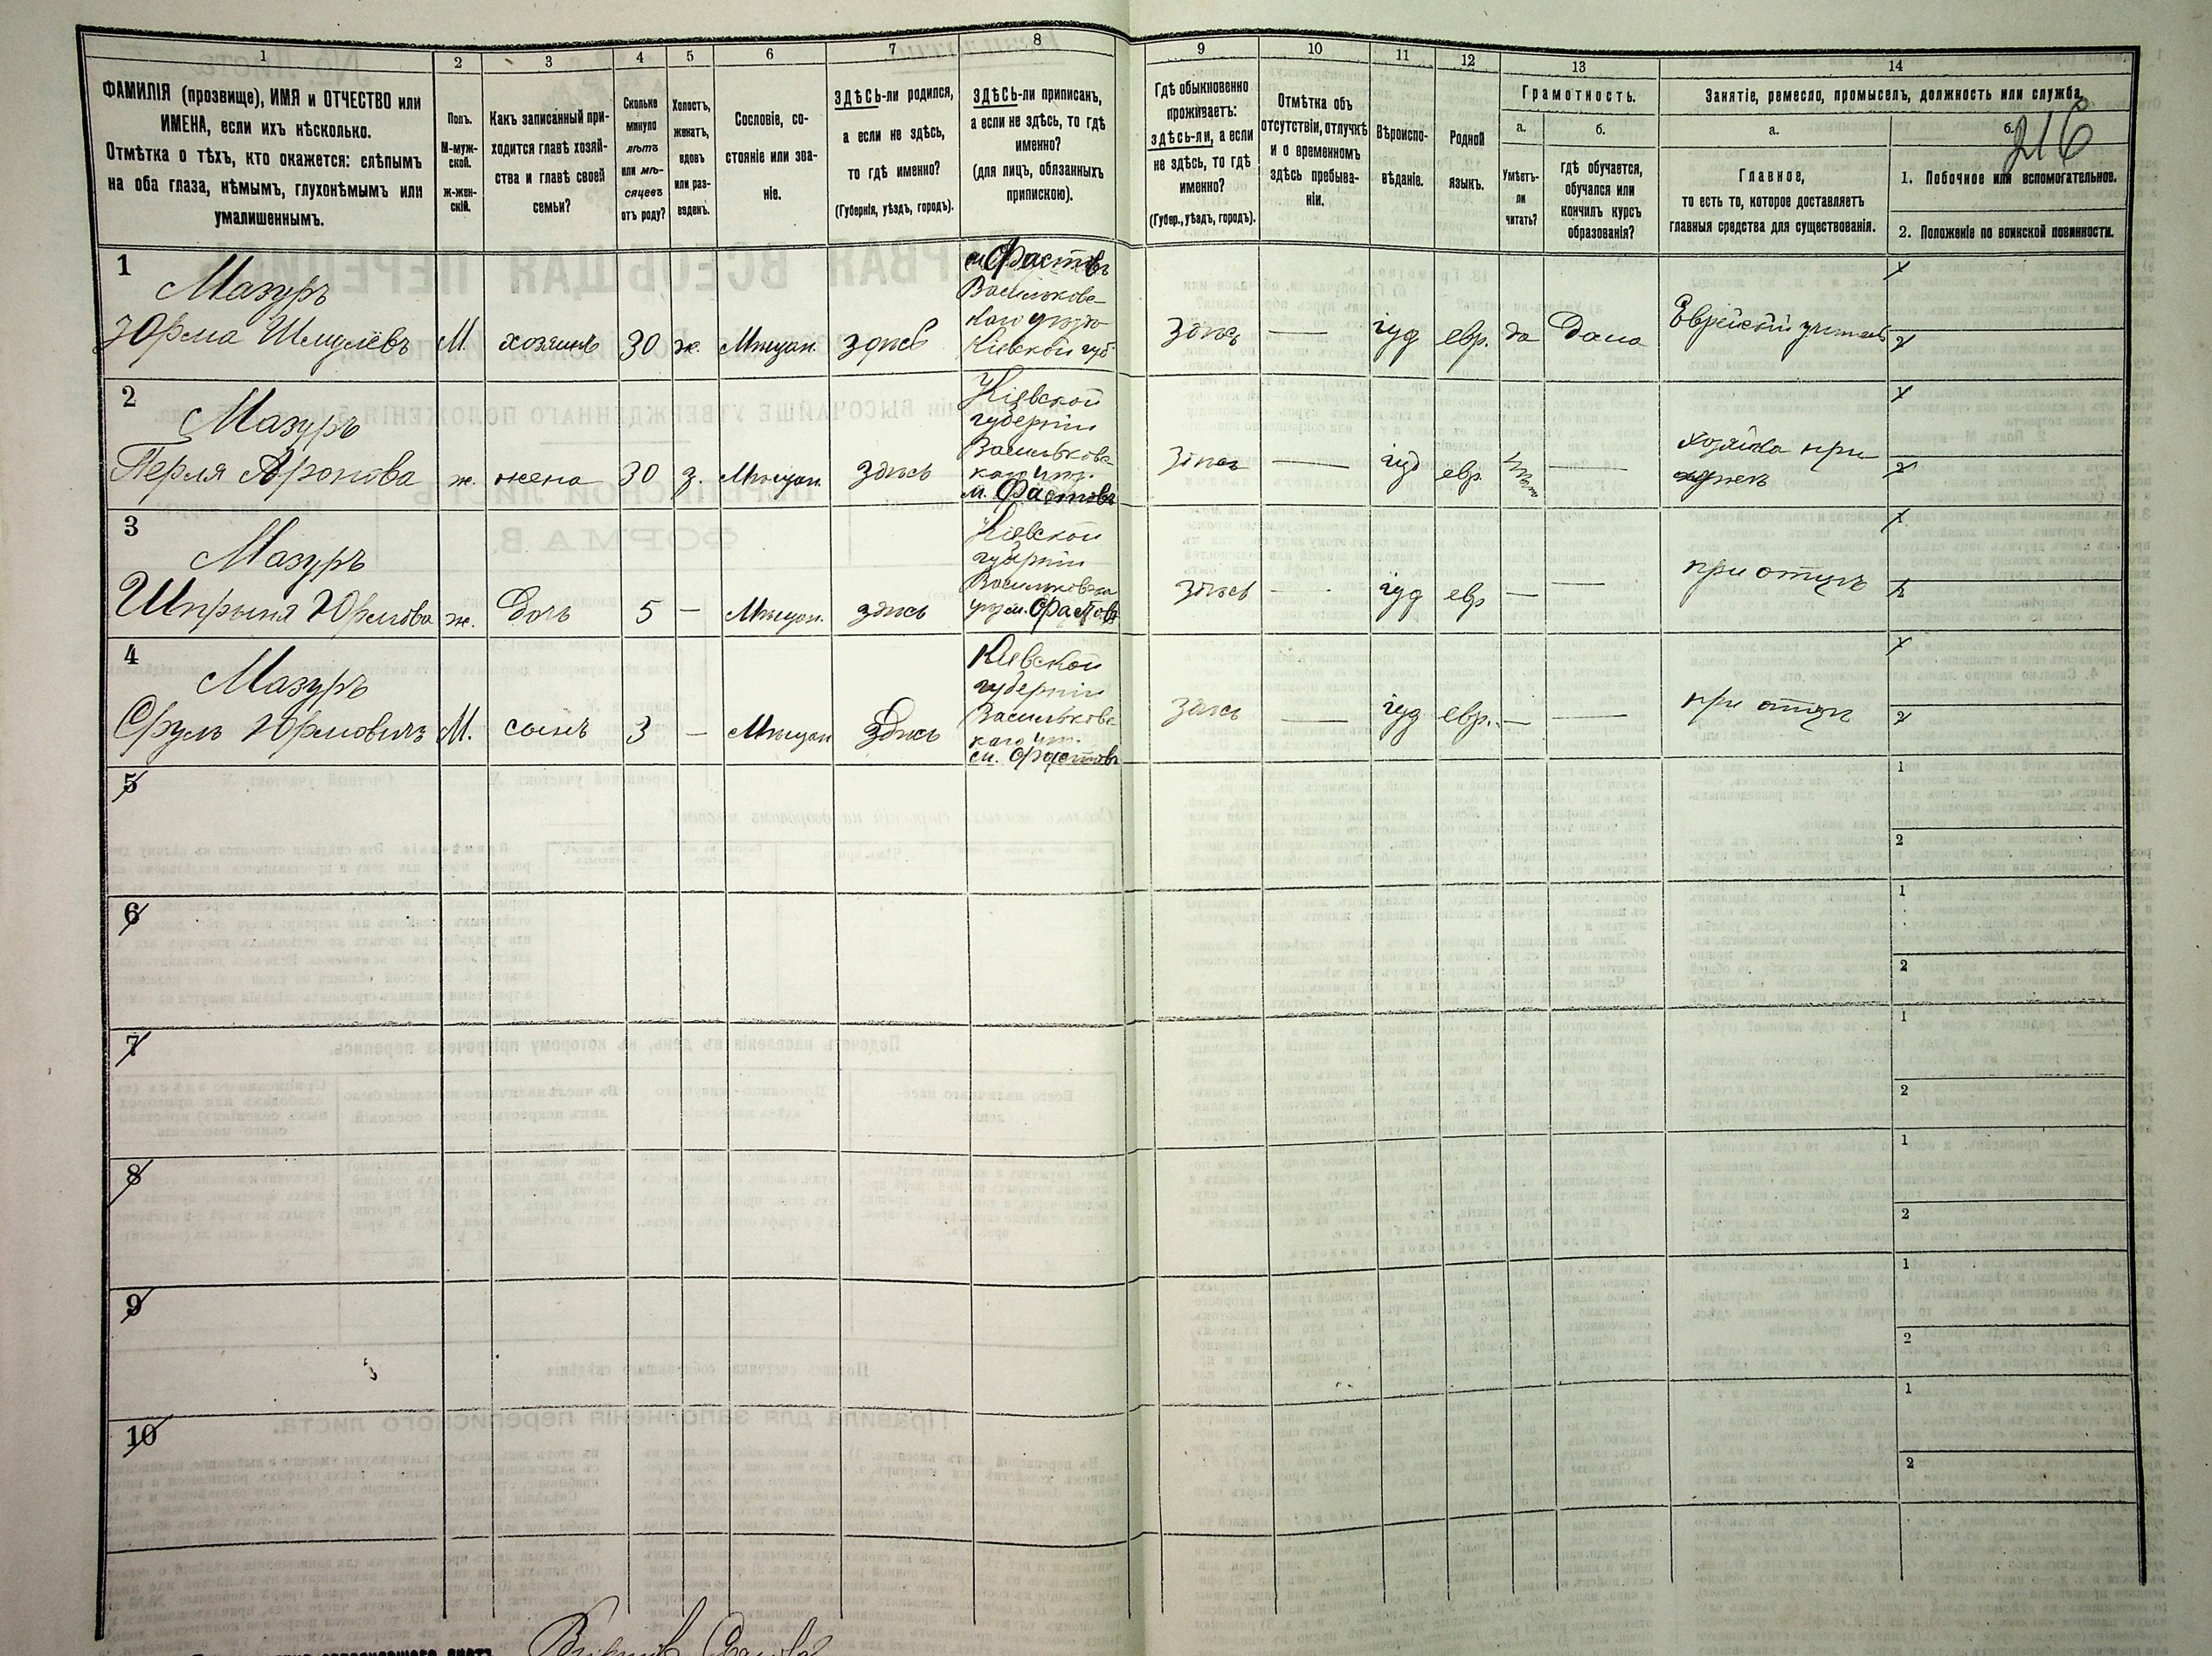 1
2
3
4
5
6
7
8
9
10
11
12
13
14
ФАМИЛІЯ (прозвище), ИМЯ и ОТЧЕСТВО или
ИМЕНА, если ихъ нѣсколько.
Отмѣтка о тѣхъ, кто окажется: слѣпымъ
на оба глаза, нѣмымъ, глухонѣмымъ или
умалишеннымъ.
Полъ.
М-муж-
ской.
ж-жен-
скій.
Какъ записанный при-
ходится главѣ хозяй-
ства и главѣ своей
семьи?
Сколько
минуло
лѣтъ
или мѣ-
сяцевъ
отъ роду?
Холостъ,
женатъ,
вдовъ
или раз-
веденъ.
Сословіе, со-
стояніе или зва-
ніе.
ЗДѢСЬ-ли родился,
а если не здѣсь,
то гдѣ именно?
(Губернія, уѣздъ, городъ).
ЗДѢСЬ-ли приписанъ,
а если не здѣсь, то гдѣ
именно?
(для лицъ, обязанныхъ
припискою).
Гдѣ обыкновенно
проживаетъ:
здѣсь-ли, а если
не здѣсь, то гдѣ
именно?
(Губер., уѣздъ, городъ).
Отмѣтка объ
отсутствіи, отлучкѣ
и о временномъ
здѣсь пребыва-
ніи.
Вѣроиспо-
вѣданіе.
Родной
языкъ.
Грамотность.
а.
б.
Умѣетъ-
ли
читать?
гдѣ обучается,
обучался или
кончилъ курсъ
образованія?
Занятіе, ремесло, промыселъ, должность или служба.
а.
б.
216
Главное,
то есть то, которое доставляетъ
главныя средства для существованія.
1. Побочное или вспомогательное.
2. Положеніе по воинской повинности.
1
Мазуръ
Юрма Шмулевъ
М.
хозяинъ
30
ж.
Мѣщан.
здѣсь
м. Фастовъ
Васильковс-
каго уѣзда
Кіевской губ.
здѣсь
—
іуд
евр.
да
дома
Еврейскій учитель
1
2
2
Мазуръ
Перля Аронова
ж.
жена
30
з.
Мѣщан.
здѣсь
Кіевской
губерніи
Васильковс-
каго
м. Фастовъ
здѣсь
—
іуд
евр.
—
хозяйка при
1
2
3
Мазуръ
Шпрыня Юрмова
ж.
дочь
5
—
Мѣщан.
здѣсь
Кіевской
губерніи
м. Фастовъ
здѣсь
—
іуд
евр
—
—
при отцѣ
1
2
4
Мазуръ
Срулъ Юрмовичъ
М.
сынъ
3
—
Мѣщан
здѣсь
Кіевской
губерніи
Васильковс-
каго
м. Фастовъ
здѣсь
—
іуд
евр.
—
—
при отцѣ
1
2
5
1
2
6
1
2
7
1
2
8
1
2
9
1
2
10
1
2